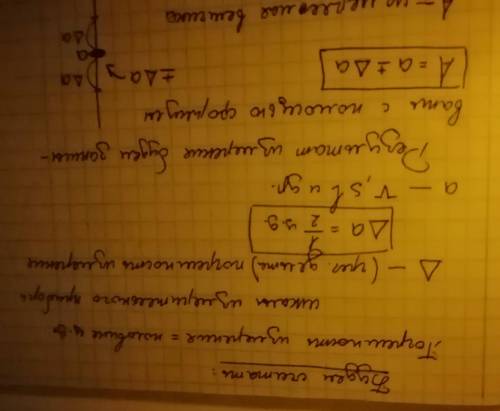 Будем считать:
Погрешность измерения = половине ц.д.
шкалы измерительного прибора
Δ — (греч. дельта) погрешность измерения
Δa = 1/2 ц.д.
a — V, S, l и др.
Результат измерения будем записы-
вать с помощью формулы
A = a ± Δa
± Δa
Δa
a
Δa
A — измеряемая величина